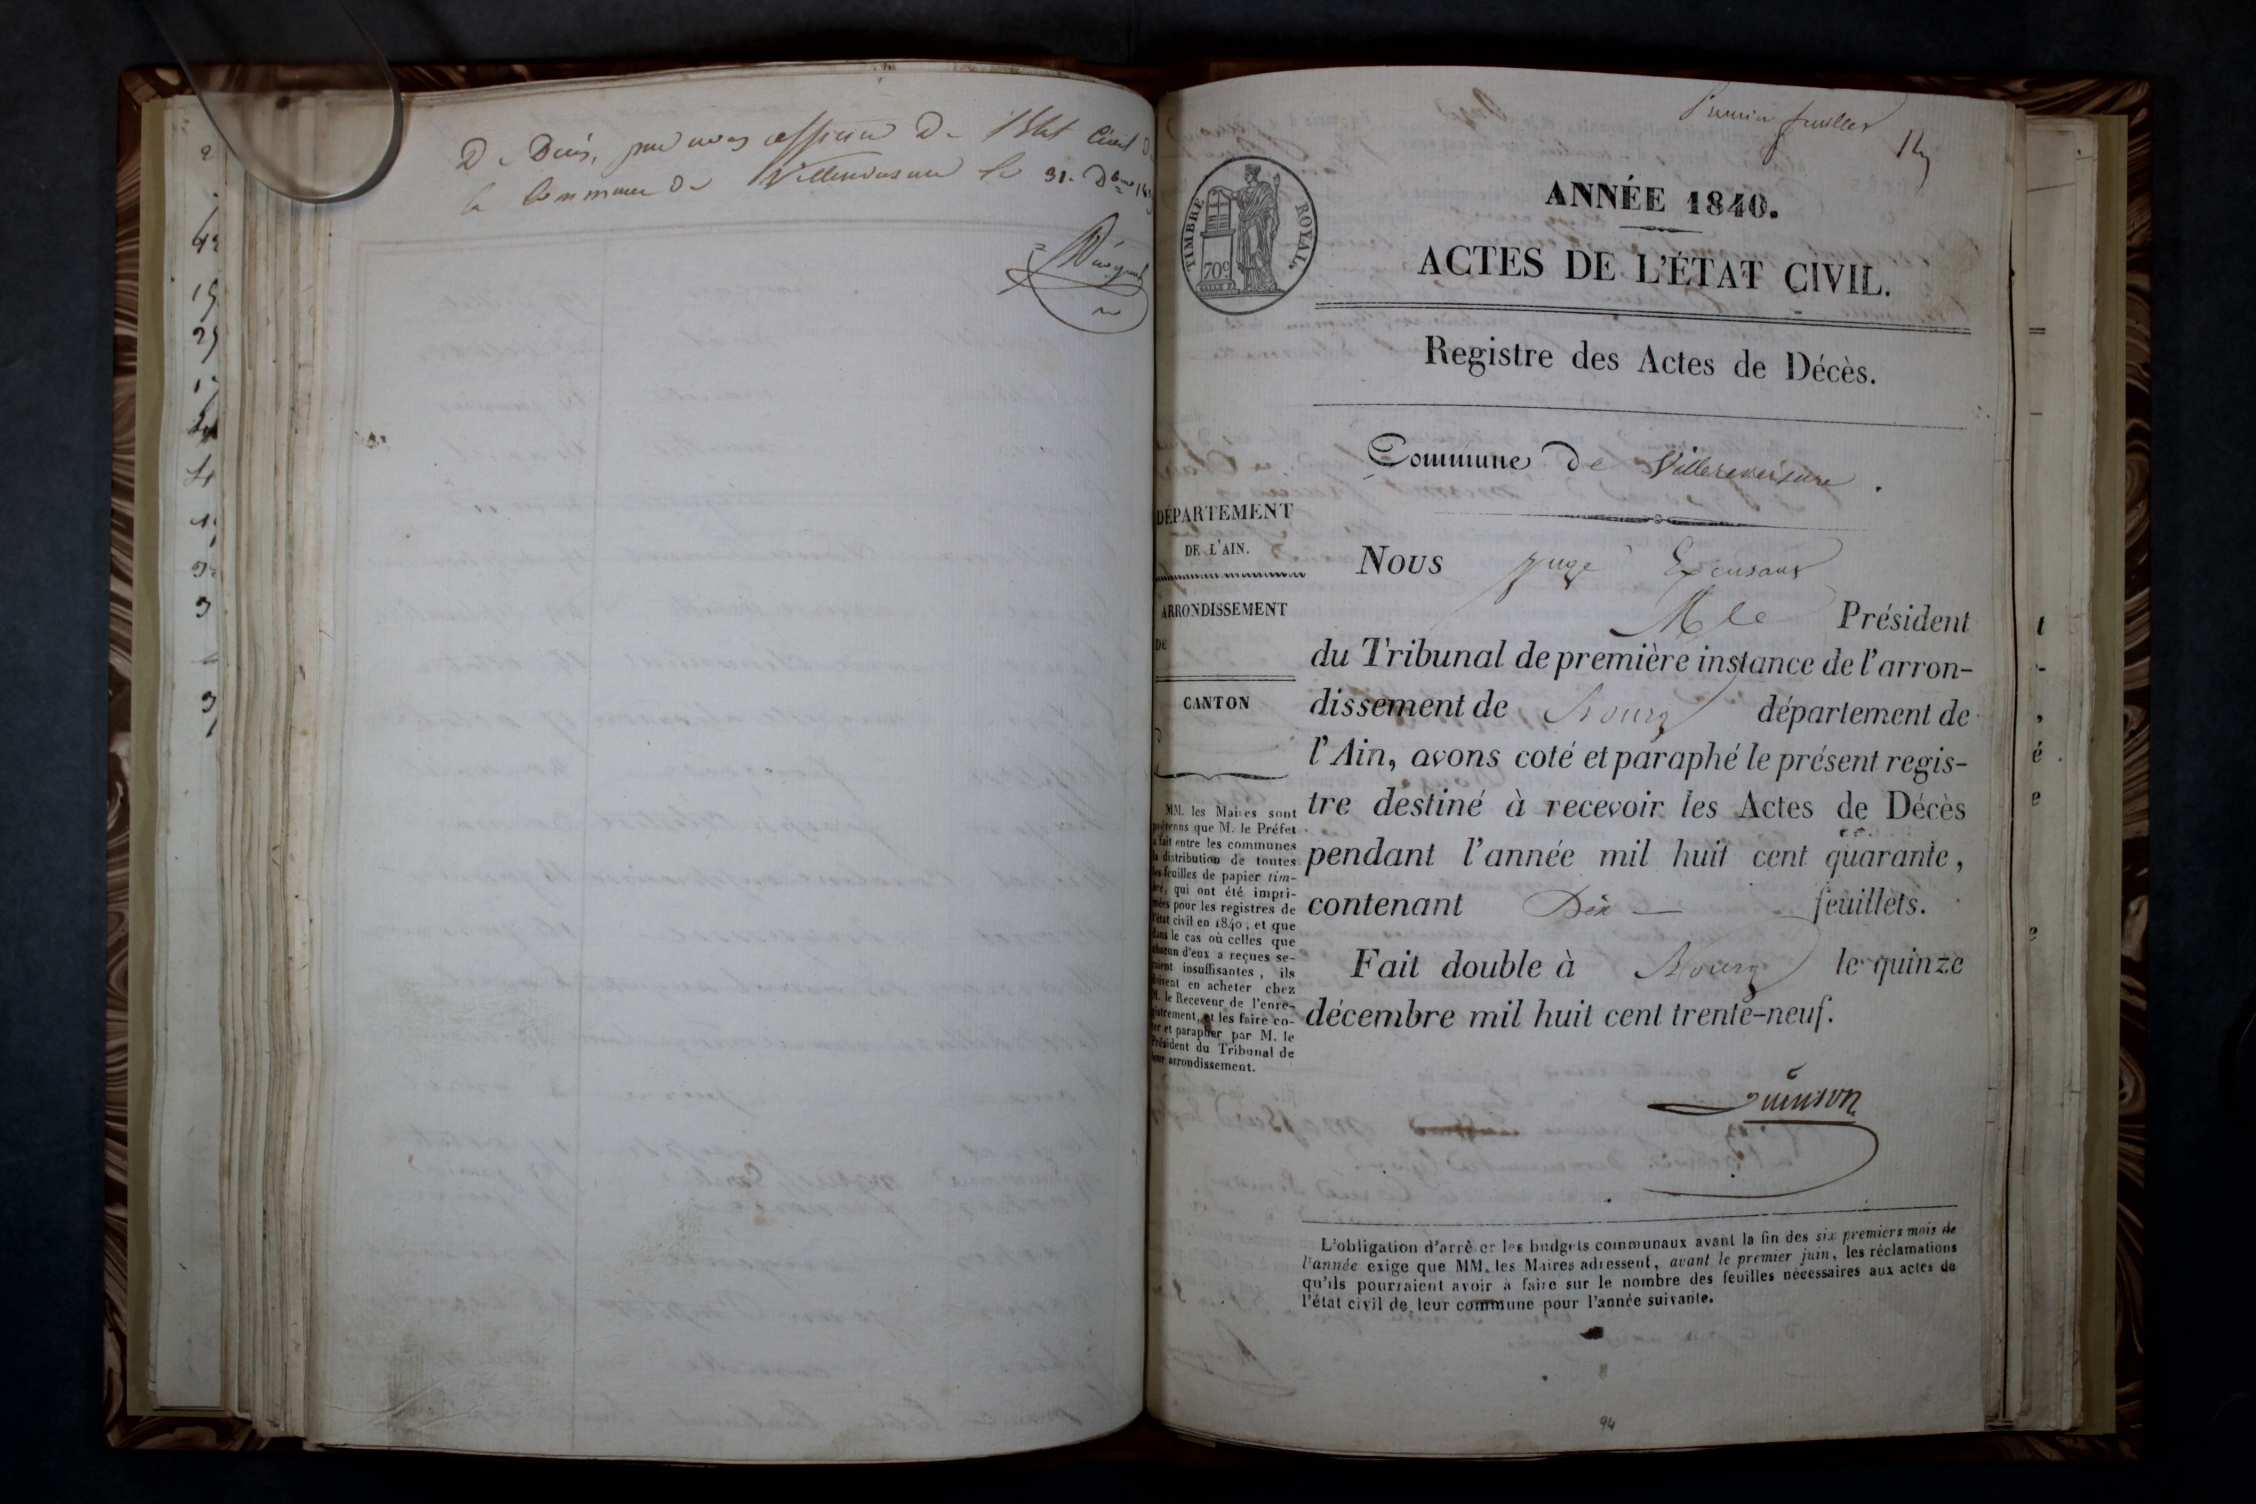 De Décès, par nous officier De l'Etat Civil De
la Commune De Villereversure le 31. Dbre 18
Premier feuillet
ANNÉE 1840.
ACTES DE L'ÉTAT CIVIL.
TIMBRE ROYAL.
70c
Registre des Actes de Décès.
Commune de Villereversure.
DÉPARTEMENT
DE L'AIN.
ARRONDISSEMENT
DE
CANTON
MM. les Maires sont
prévenus que M. le Préfet
a fait entre les communes
la distribution de toutes
les feuilles de papier tim-
bré, qui ont été impri-
mées pour les registres de
l'état civil en 1840, et que
dans le cas où celles que
chacun d'eux a reçues se-
raient insuffisantes, ils
doivent en acheter chez
M. le Receveur de l'enre-
gistrement, et les faire co-
ter et parapher par M. le
Président du Tribunal de
leur arrondissement.
Nous juge Exerçant
Mr le Président
du Tribunal de première instance de l'arron-
dissement de Bourg département de
l'Ain, avons coté et paraphé le présent regis-
tre destiné à recevoir les Actes de Décès
pendant l'année mil huit cent quarante,
contenant Dix feuillets.
Fait double à Bourg le quinze
décembre mil huit cent trente-neuf.
L'obligation d'arrêter les budgets communaux avant la fin des six premiers mois de
l'année exige que MM. les Maires adressent, avant le premier juin, les réclamations
qu'ils pourraient avoir à faire sur le nombre des feuilles nécessaires aux actes de
l'état civil de leur commune pour l'année suivante.
94